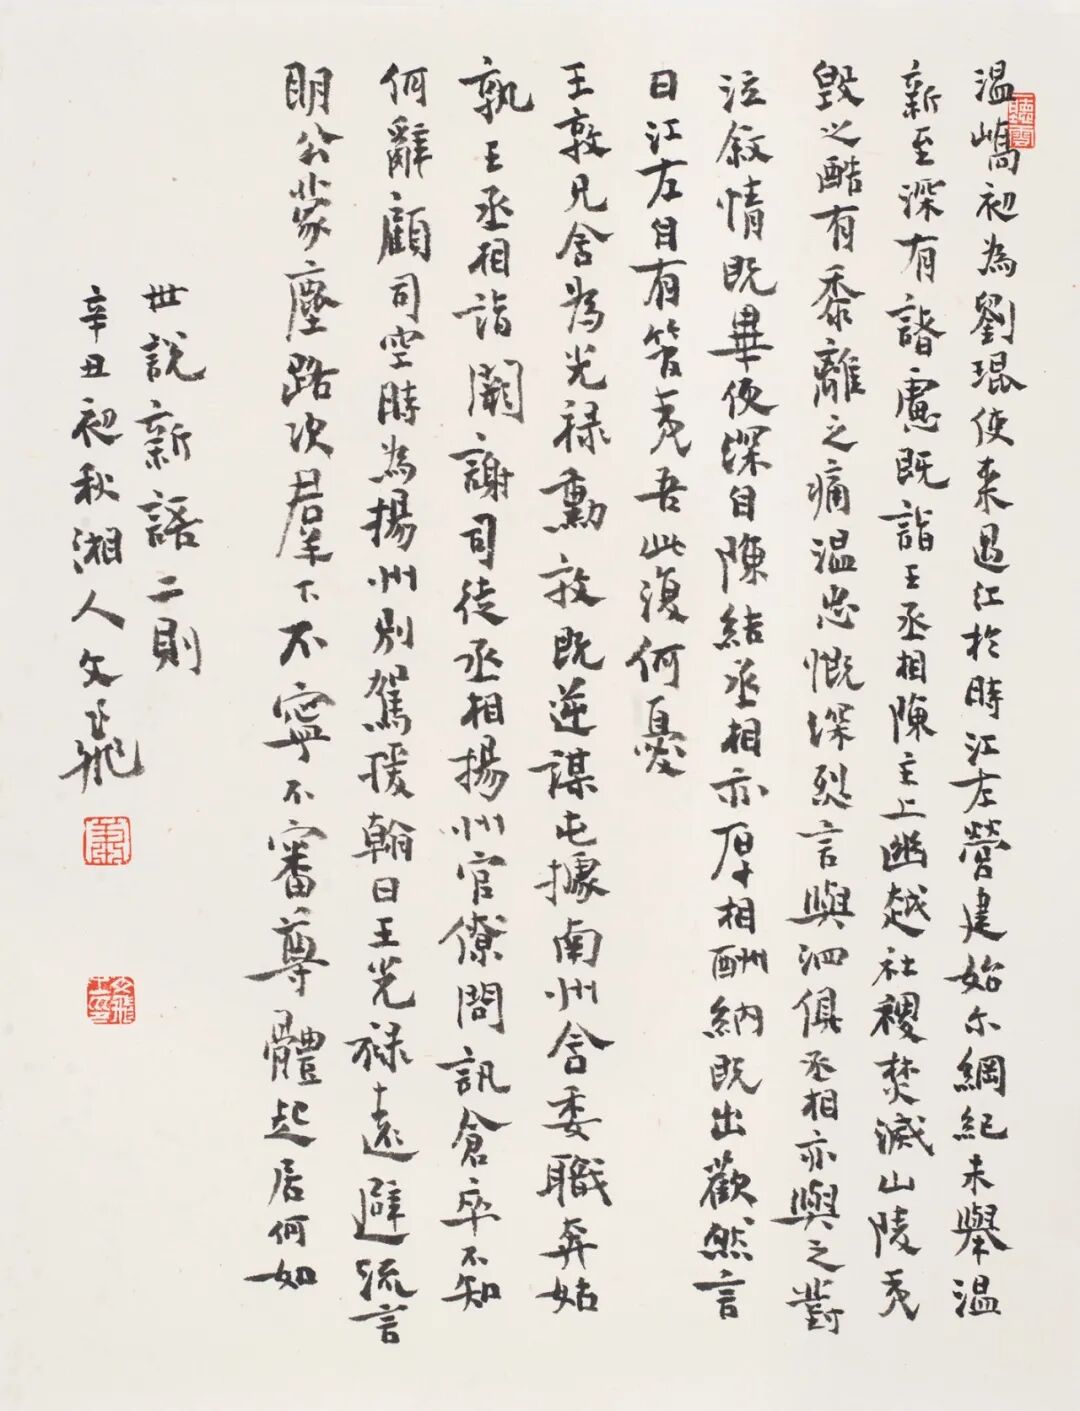 聽雲
温嶠初為劉琨使来過江於時江左營建始尔綱紀未舉温
新至深有諸慮既詣王丞相陳主上幽越社稷焚滅山陵夷
毀之酷有黍離之痛温忠慨深烈言與泗俱丞相亦與之對
泣叙情既畢便深自陳結丞相亦厚相酬納既出歡然言
曰江左自有管夷吾此復何憂
王敦兄含為光禄勳敦既逆謀屯據南州含委職奔姑
孰王丞相詣闕謝司徒丞相揚州官僚問訊倉卒不知
何辭顧司空時為揚州別駕援翰曰王光禄遠避流言
明公蒙塵路次羣下不寧不審尊體起居何如
世說新語二則
辛丑初秋湘人文飛